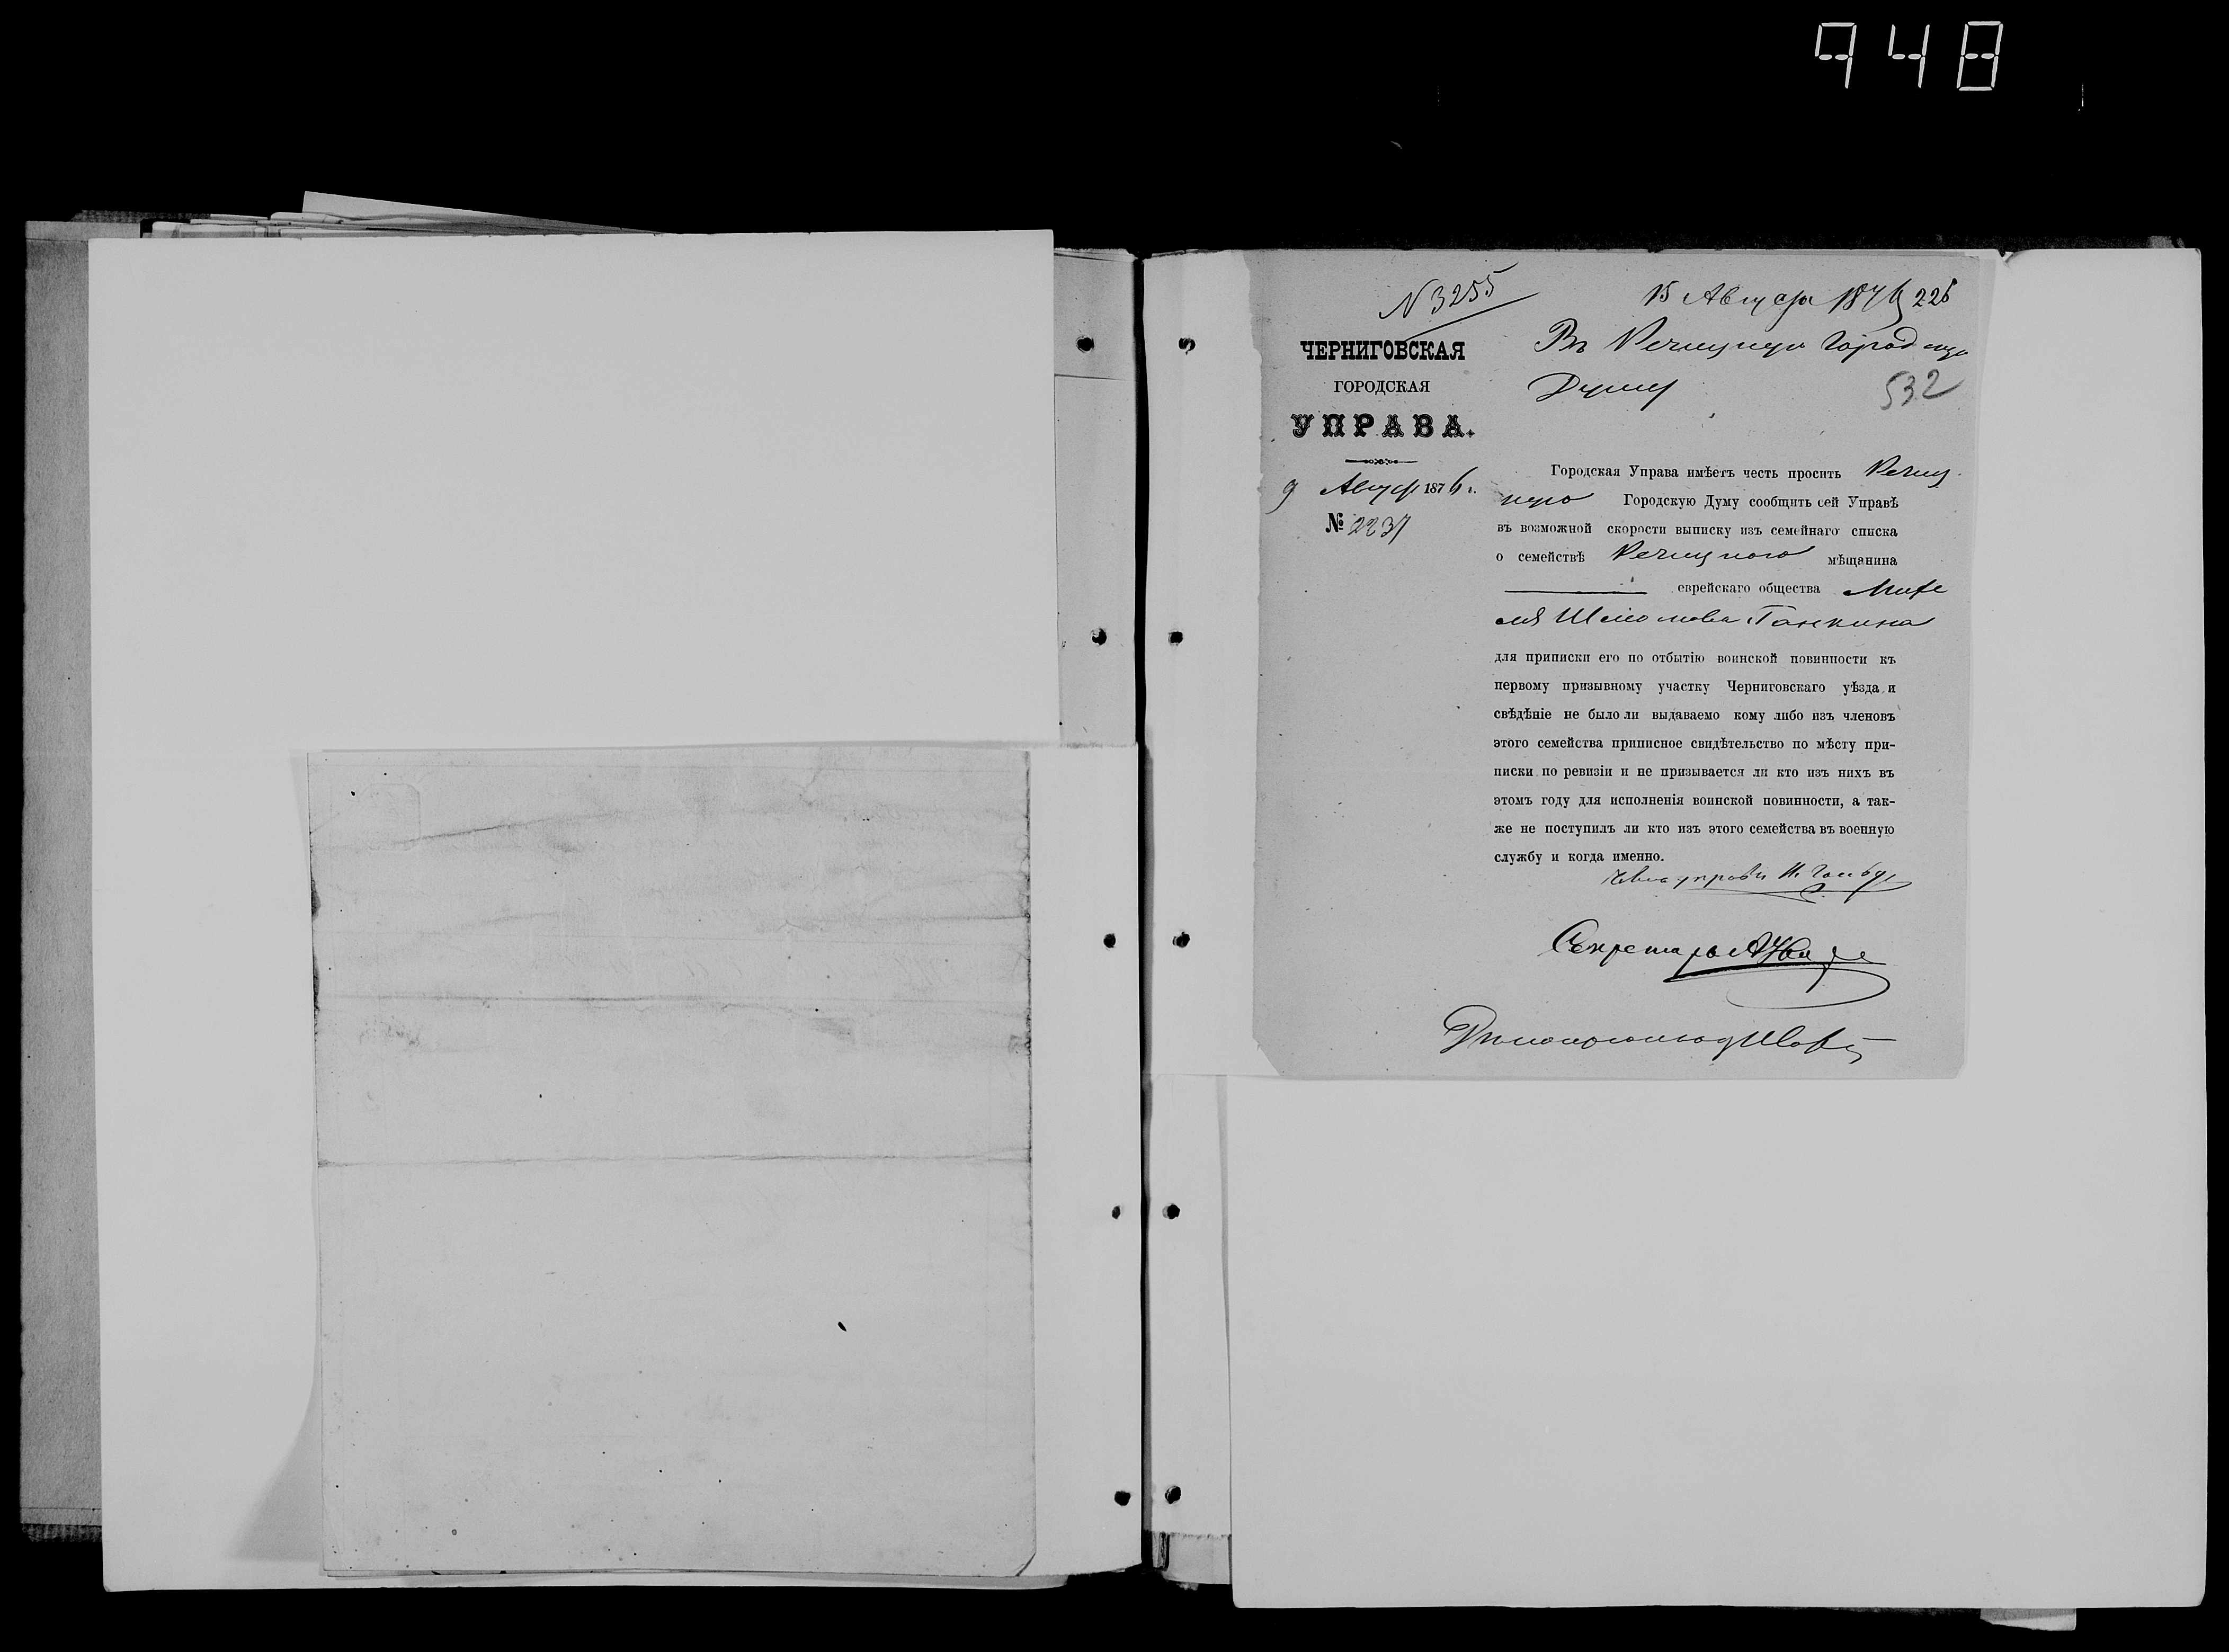 948
N 3255
15 Августа 1876 226
ЧЕРНИГОВСКАЯ
ГОРОДСКАЯ
УПРАВА.
9 Августа 1876 г.
№ 2237
Въ Речицкую Городскую
Думу
532
Городская Управа имѣетъ честь просить Речиц-
кую Городскую Думу сообщить сей Управѣ
въ возможной скорости выписку изъ семейнаго списка
о семействѣ Речицкаго мѣщанина
еврейскаго общества
Ганкина
для приписки его по отбытію воинской повинности къ
первому призывному участку Черниговскаго уѣзда и
свѣдѣніе не было ли выдаваемо кому либо изъ членовъ
этого семейства приписное свидѣтельство по мѣсту при-
писки по ревизіи и не призывается ли кто изъ нихъ въ
этомъ году для исполненія воинской повинности, а так-
же не поступилъ ли кто изъ этого семейства въ военную
службу и когда именно.
Секретарь